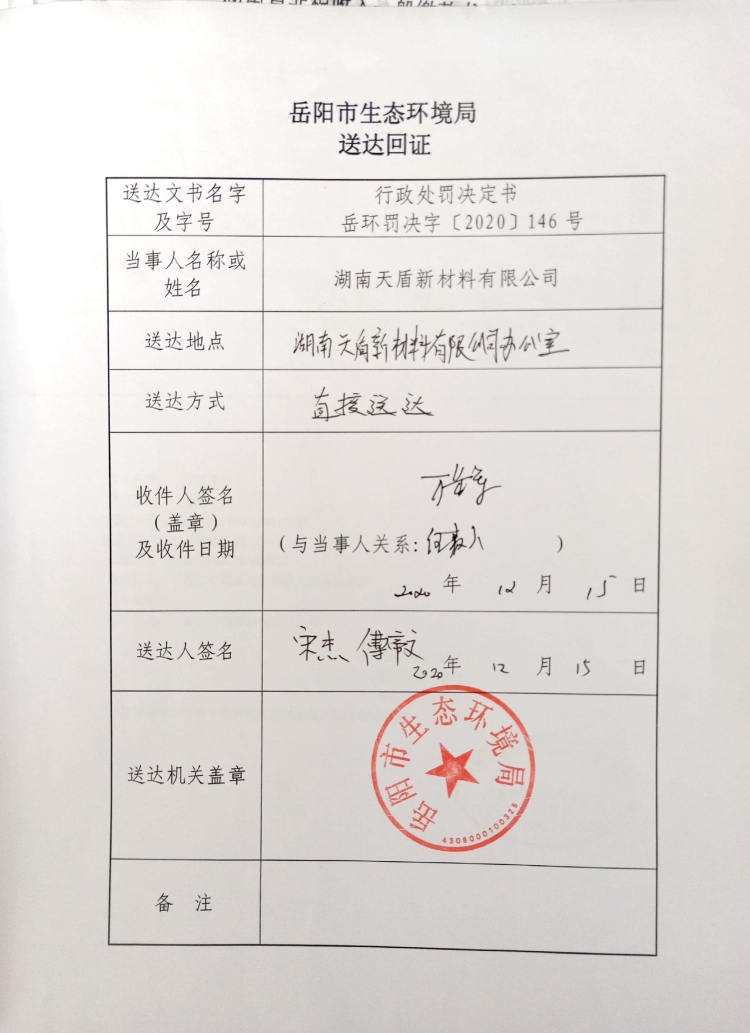 岳阳市生态环境局
送达回证
送达文书名字
及字号
行政处罚决定书
岳环罚决字〔2020〕146号
当事人名称或
姓名
湖南天盾新材料有限公司
送达地点
湖南天盾新材料有限公司办公室
送达方式
直接送达
收件人签名
（盖章）
及收件日期
（与当事人关系: ）
2020年 12月 15日
送达人签名
宋杰
2020年 12月 15日
送达机关盖章
岳阳市生态环境局
4306000100325
备 注